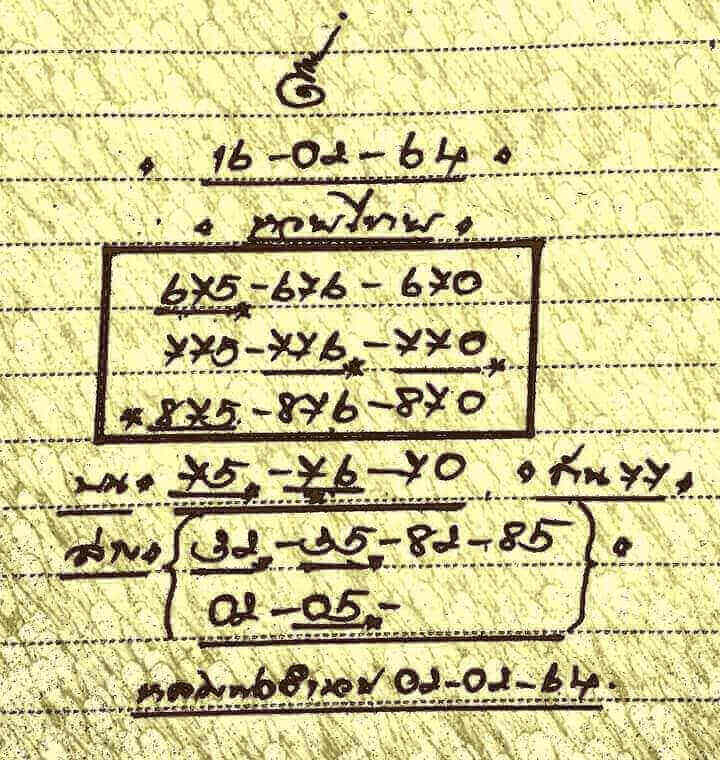 16-02-64
675-676-670
775-776-770
875-876-870
บน 75-76-70 กัน 77
ล่าง 32-35-82-85
02-05-
02-02-64